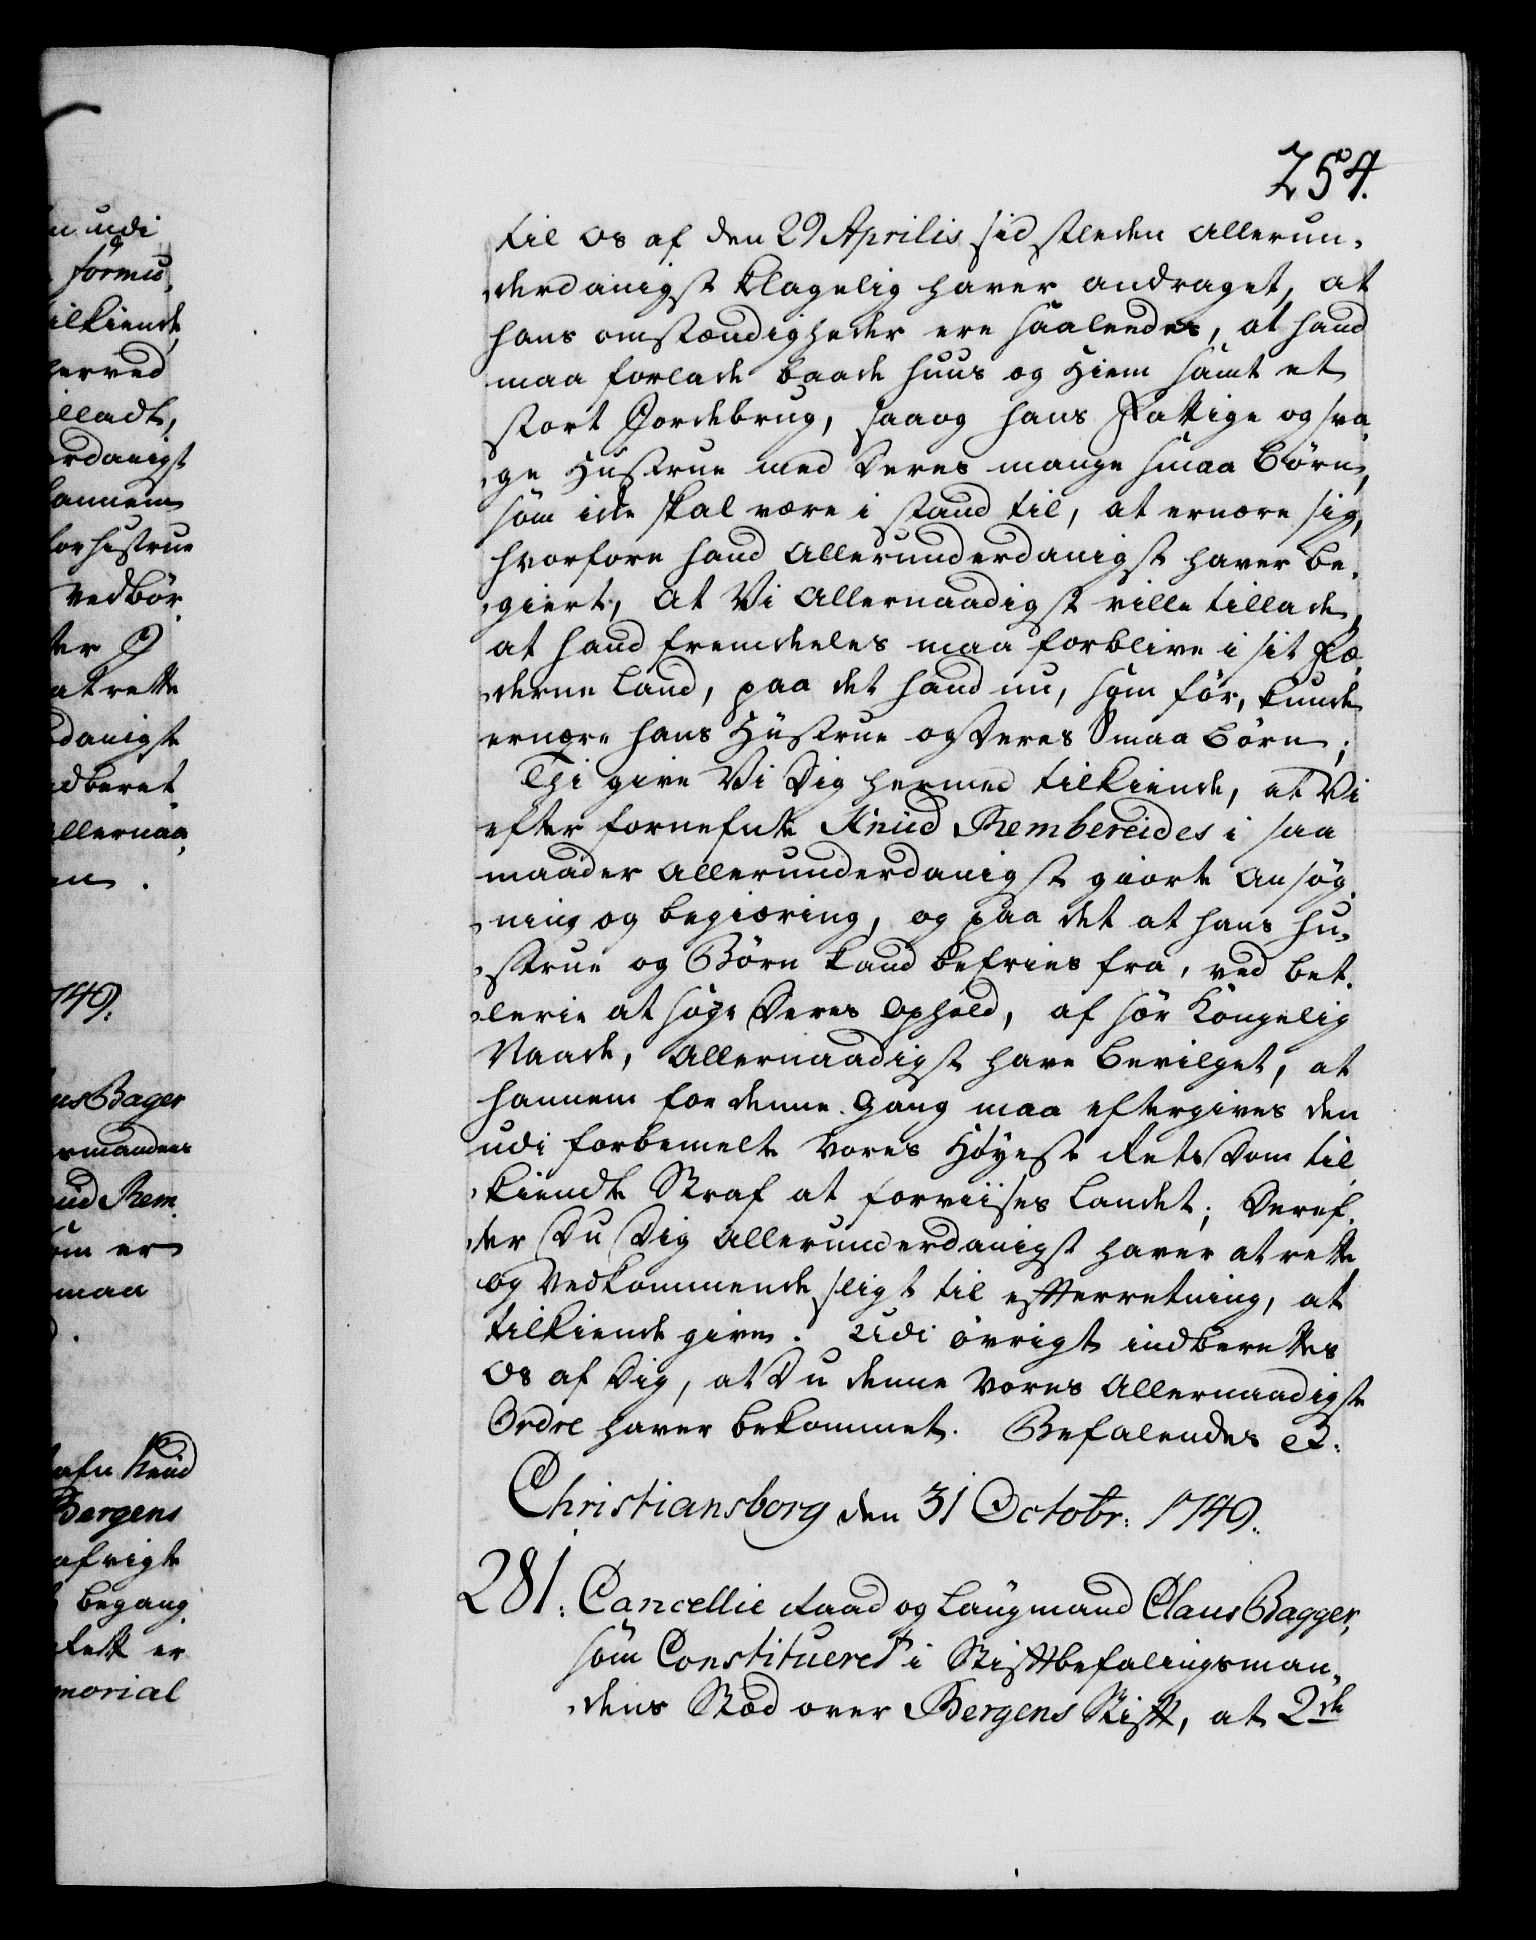 n udi
formu,
ilkiende
herved
illadt,
erdanigst
hannem
for hustrue
vedbör
ter J
at rette
danigst
dberet
allernaa,
en.
749.
us Bager
rmandens
ud Rem
om er
maa
afn Knud
Bergens
afvigte
begang
Rett er
morial
254.
til os af den 29 Aprilis sidstleden allerun,
,derdanigst klagelig haver andraget, at
hans omstændigheder ere saaledes, at hand
maa forlade baade huus og Hiem samt et
stort Jordebrug, saa og hans Fattige og sva,
,ge Hustrue med deres mange smaa Börn,
som icke skal være i stand til, at ernære sig,
hvorfore hand allerunderdanigst haver be,
,giert, at Vi allernaadigst ville tillade,
at hand fremdeeles maa forblive i sit Fæ,
,derne Land, paa det hand nu, som för, kunde
ernære hans Hustrue og deres Smaa Börn;
Thi give Vi Dig hermed tilkiende, at Vi
efter fornefnte Knud Rembereides i saa
maader allerunderdanigst giorte ansög,
,ning og begiæring, og paa det at hans Hu,
,strue og Börn kand befries fra, ved bet,
,lerie at söge deres ophold, af sær Kongelig
Naade, allernaadigst have bevilget, at
hannem for denne gang maa eftergives den
udi forbemelte Vores Höyeste Rets Dom til,
,kiendte Straf at forviises Landet; Deref,
,ter Du Dig allerunderdanigst haver at rette
og Vedkommende sligt til efterretning, at
tilkiende give. Udi övrigt indberettes
os af Dig, at Du denne Vores allernaadigste
Ordre haver bekommet. Befalendes &:
Christiansborg den 31 Octobr: 1749.
281. Cancellie Raad og Laugmand Claus Bagger,
som Constitueret i Stiftbefalingsman,
,dens Stæd over Bergens Stift, at 2de